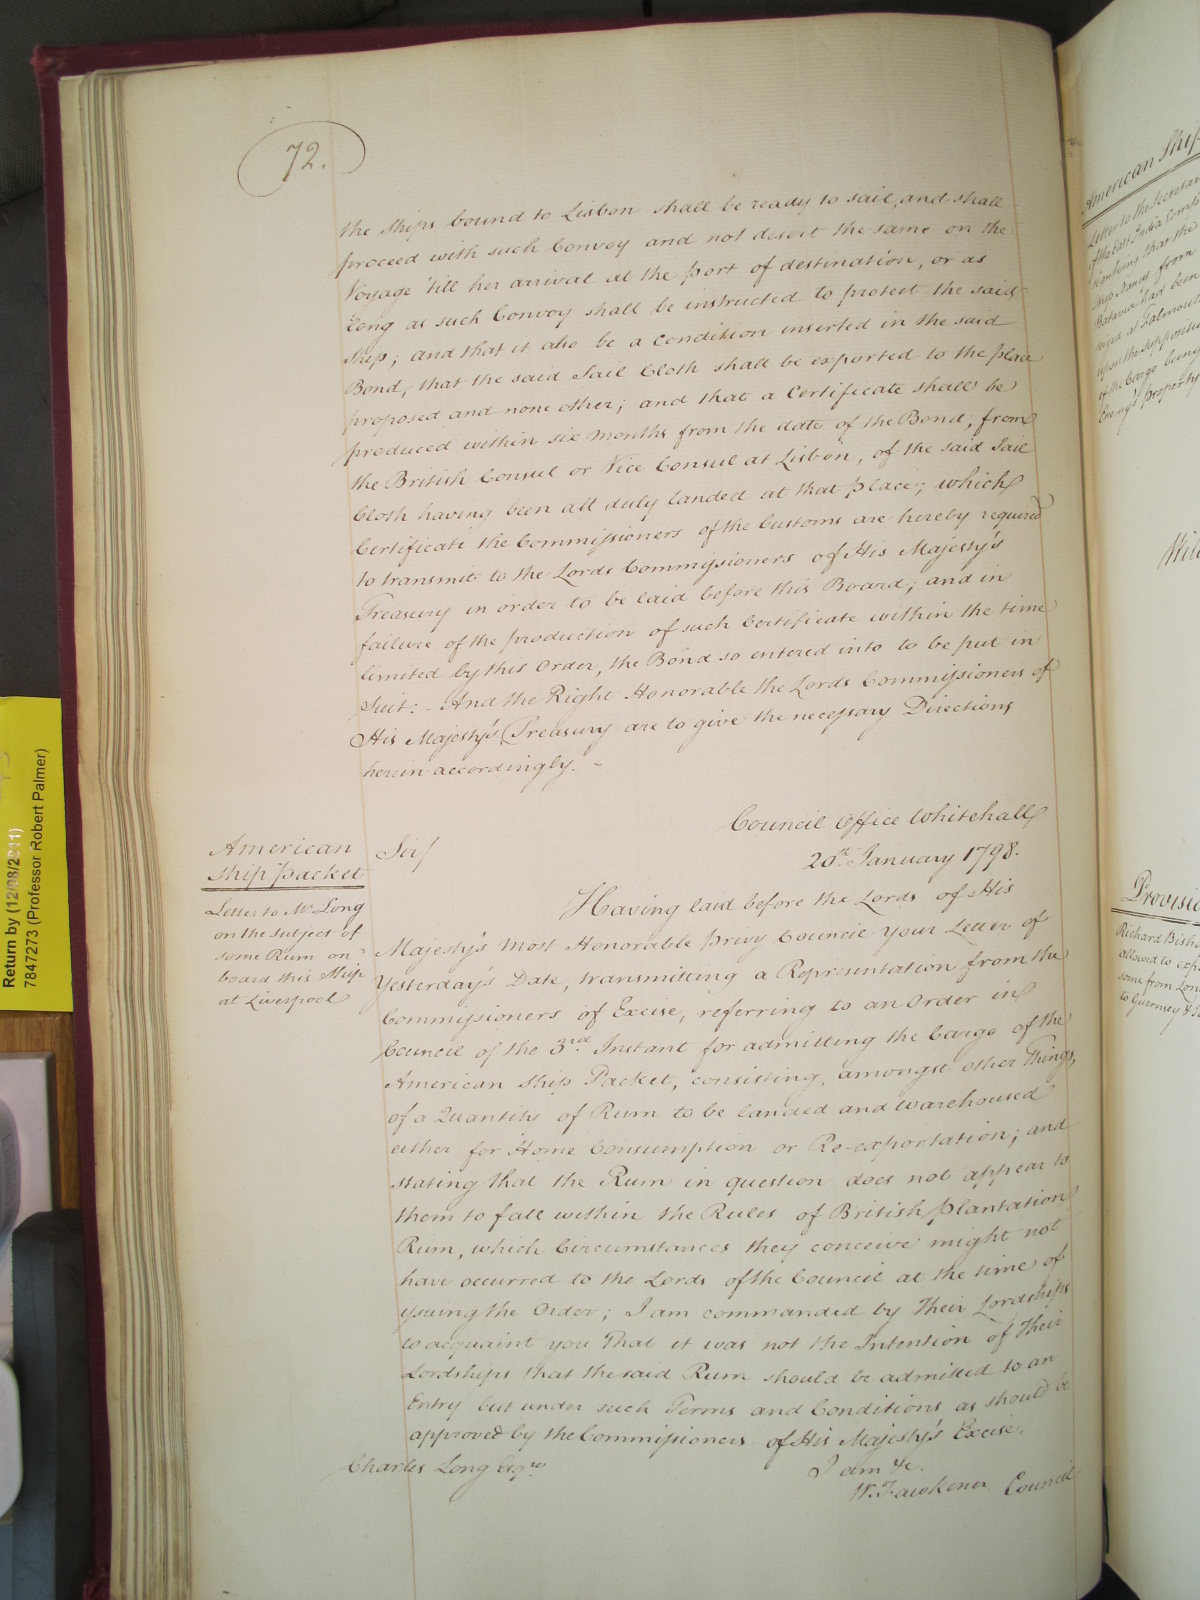 72.
the Ships bound to Lisbon shall be ready to sail, and shall
proceed with such Convoy and not desert the same on the
Voyage 'till her arrival at the port of destination, or as
long as such Convoy shall be instructed to protect the said
Ship; and that it also be a condition inserted in the said
Bond, that the said Sail Cloth shall be exported to the place
proposed and none other; and that a Certificate shall be
produced within six months from the date of the Bond, from
the British Consul or Vice Consul at Lisbon, of the said Sail
Cloth having been all duly landed at that place; which
Certificate the Commissioners of the Customs are hereby required
to transmit to the Lords Commissioners of His Majesty's
Treasury in order to be laid before this Board; and in
failure of the production of such Certificate within the time
limited by this Order, the Bond so entered into to be put in
Suit: - And the Right Honorable the Lords Commissioners of
His Majesty's Treasury are to give the necessary Directions
herein accordingly. -
Council Office Whitehall
20th January 1798.
American
Ship Packet
Letter to Mr Long
on the subject of
some Rum on
board this Ship
at Liverpool
Sir/
Having laid before the Lords of His
Majesty's most Honorable privy Council your Letter of
Yesterday's Date, transmitting a Representation from the
Commissioners of Excise, referring to an Order in
Council of the 3rd Instant for admitting the Cargo of the
American Ship Packet, consisting, amongst other Things,
of a Quantity of Rum to be landed and warehoused
either for Home Consumption or Re-exportation; and
stating that the Rum in question does not appear to
them to fall within the Rules of British plantation
Rum, which Circumstances they conceive might not
have occurred to the Lords of the Council at the time of
issuing the Order; I am commanded by Their Lordships
to acquaint you That it was not the Intention of Their
Lordships that the said Rum should be admitted to an
Entry but under such Terms and Conditions as should be
approved by the Commissioners of His Majesty's Excise.
I am &c.
W. Fawkener Council
Charles Long Esqre
American Ship
Letter to the Secretary
of the East India
that the
Ship from
Batavia had been
at Falmouth
upon the
of the Cargo being
Enemy's property
Provisio
Richard Bisho
allowed to exp
some from Lon
to Guernsey &
Return by (12/08/2011)
7847273 (Professor Robert Palmer)